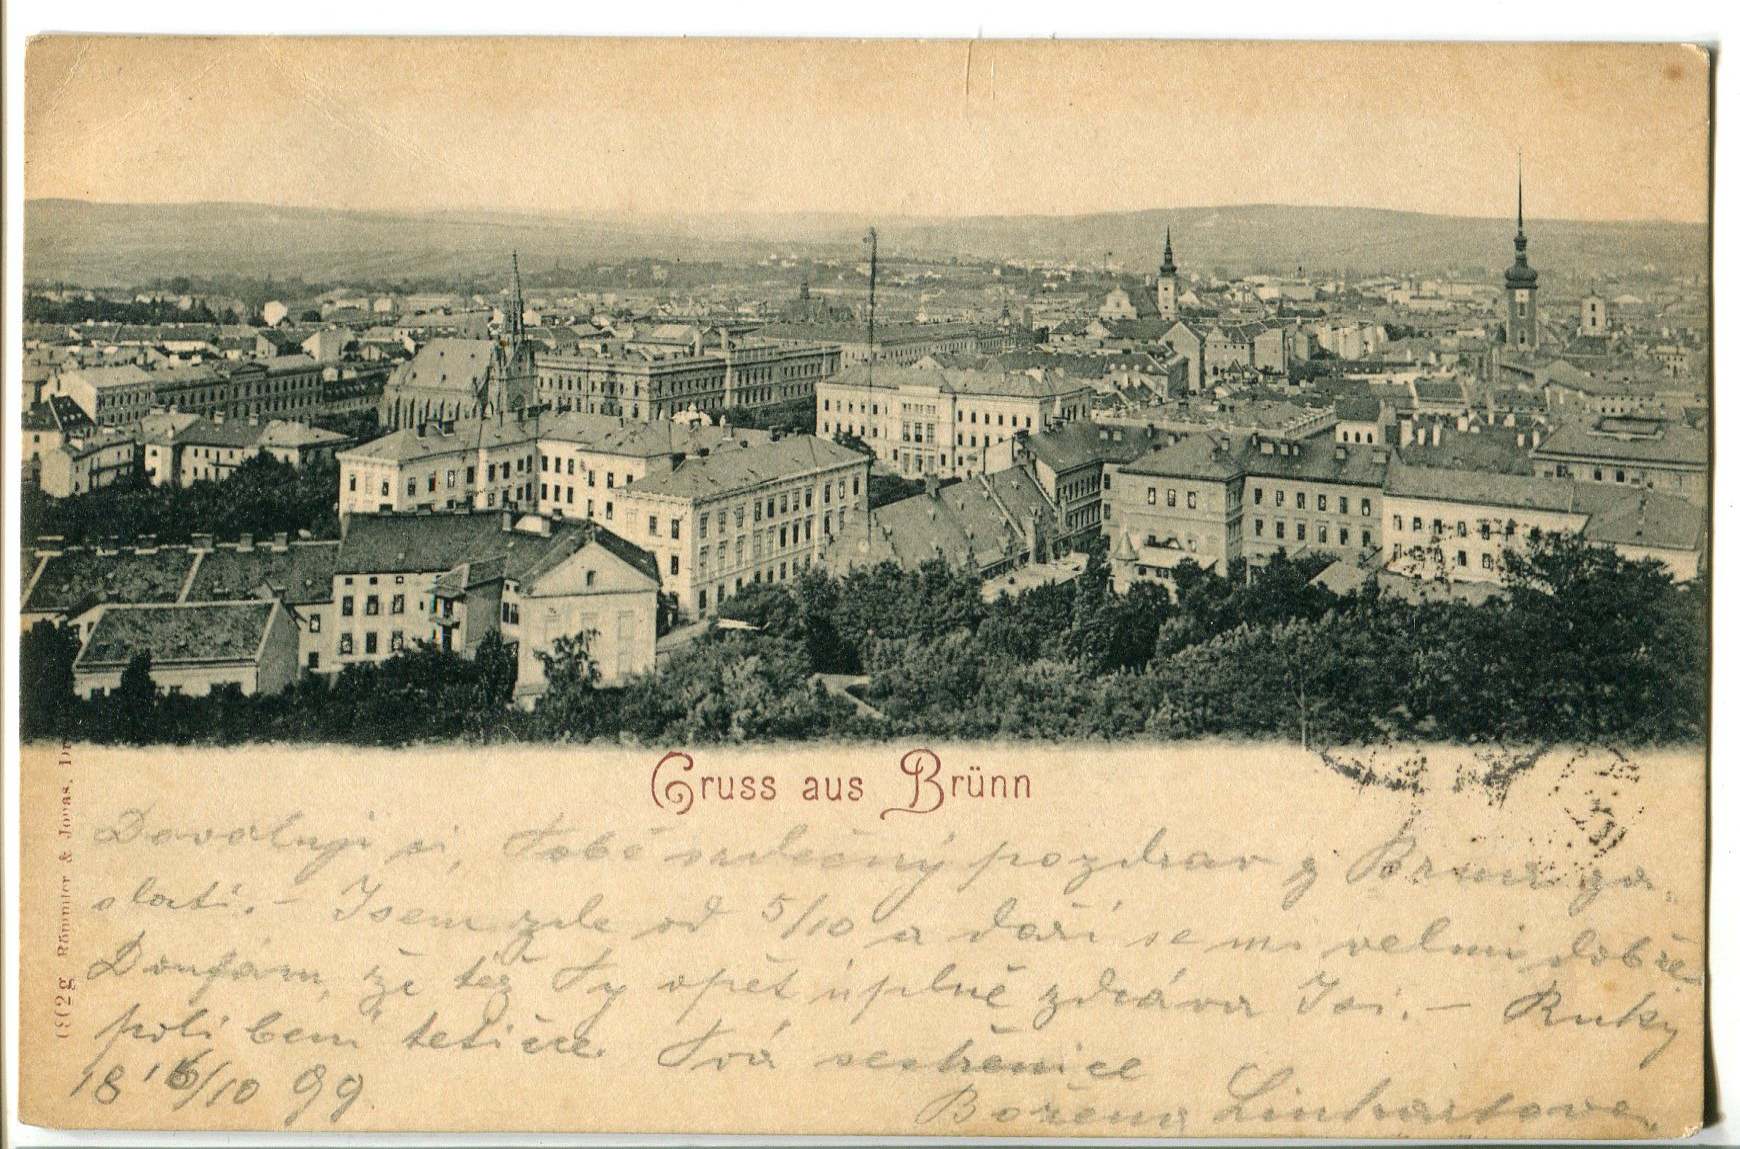 Gruss aus Brünn
Dovoluji si, Tobě srdečný pozdrav z Brna za-
slati. - Jsem zde od 5/10 a daří se mi velmi dobře
Doufám, že též Ty opět úplně zdráva Jsi. - Ruky
políbení tetičce. Tvá sestřenice
18 16/10 99.
Božena Linhartova.
Römmler & Jonas.